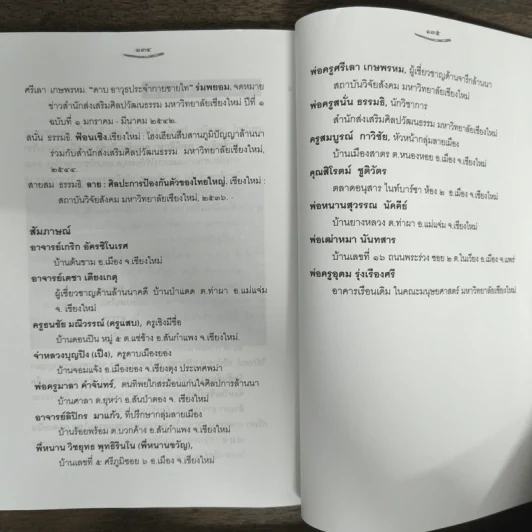 ๑๓๔
ศรีเลา เกษพรหม. "ดาบ อาวุธประจำกายชายไท" ร่มพยอม. จดหมาย
ข่าวสำนักส่งเสริมศิลปวัฒนธรรม มหาวิทยาลัยเชียงใหม่ ปีที่ ๑
ฉบับที่ ๑ มกราคม - มีนาคม ๒๕๔๒.
สนั่น ธรรมธิ. ฟ้อนเชิง.เชียงใหม่ : โฮงเฮียนสืบสานภูมิปัญญาล้านนา
ร่วมกับสำนักส่งเสริมศิลปวัฒนธรรม มหาวิทยาลัยเชียงใหม่,
๒๕๔๔.
สายสม ธรรมธิ. ลาย : ศิลปะการป้องกันตัวของไทยใหญ่. เชียงใหม่ :
สถาบันวิจัยสังคม มหาวิทยาลัยเชียงใหม่, ๒๕๓๖.
สัมภาษณ์
อาจารย์เกริก อัครชิโนเรศ
บ้านต้นขาม อ.เมือง จ.เชียงใหม่
อาจารย์เดชา เตียงเกตุ
ผู้เชี่ยวชาญด้านล้านนาคดี บ้านป่าแดด ต.ท่าผา อ.แม่แจ่ม
จ. เชียงใหม่
ครูธนชัย มณีวรรณ์ (ครูแสบ), ครูเชิงมีชื่อ
บ้านดอนปิน หมู่ ๕ ต.แช่ช้าง อ.สันกำแพง จ.เชียงใหม่.
จำหลวงบุญปิง (เป็ง), ครูดาบเมืองยอง
บ้านจอมแจ้ง อ.เมืองยอง จ.เชียงตุง ประเทศพม่า
พ่อครูมาลา คำจันทร์, ตนทิพยไกสรม้อนแก่นใจศิลปการล้านนา
บ้านศาลา ต.ยุหว่า อ.สันป่าตอง จ. เชียงใหม่
อาจารย์ลิปิกร มาแก้ว, ที่ปรึกษากลุ่มลายเมือง
บ้านร้อยพร้อม ต.บวกค้าง อ.สันกำแพง จ.เชียงใหม่
พี่หนาน วิชยุทธ พุทธิรินโน (พี่หนานขวัญ),
บ้านเลขที่ ๕ ศรีภูมิซอย ๖ อ.เมือง จ.เชียงใหม่
๑๓๕
พ่อครูศรีเลา เกษพรหม, ผู้เชี่ยวชาญด้านจารึกล้านนา
สถาบันวิจัยสังคม มหาวิทยาลัยเชียงใหม่
พ่อครูสนั่น ธรรมธิ, นักวิชาการ
สำนักส่งเสริมศิลปวัฒนธรรม มหาวิทยาลัยเชียงใหม่
ครูสมบูรณ์ กาวิชัย, หัวหน้ากลุ่มลายเมือง
บ้านเมืองสาตร ต.หนองหอย อ.เมือง จ.เชียงใหม่
คุณสิโรตม์ ชูติวัตร
ตลาดอนุสาร ไนท์บาร์ซา ห้อง ๒ อ.เมือง จ.เชียงใหม่
พ่อหนานสุวรรณ นัคคีย์
บ้านยางหลวง ต.ท่าผา อ.แม่แจ่ม จ.เชียงใหม่
พ่อเฒ่าหมา นันทสาร
บ้านเลขที่ ๑๖ ถนนพระร่วง ซอย ๒ ต.ในเวียง อ.เมือง จ.แพร่
พ่อครูอุดม รุ่งเรืองศรี
อาคารเรือนเดิม ในคณะมนุษยศาสตร์ มหาวิทยาลัยเชียงใหม่